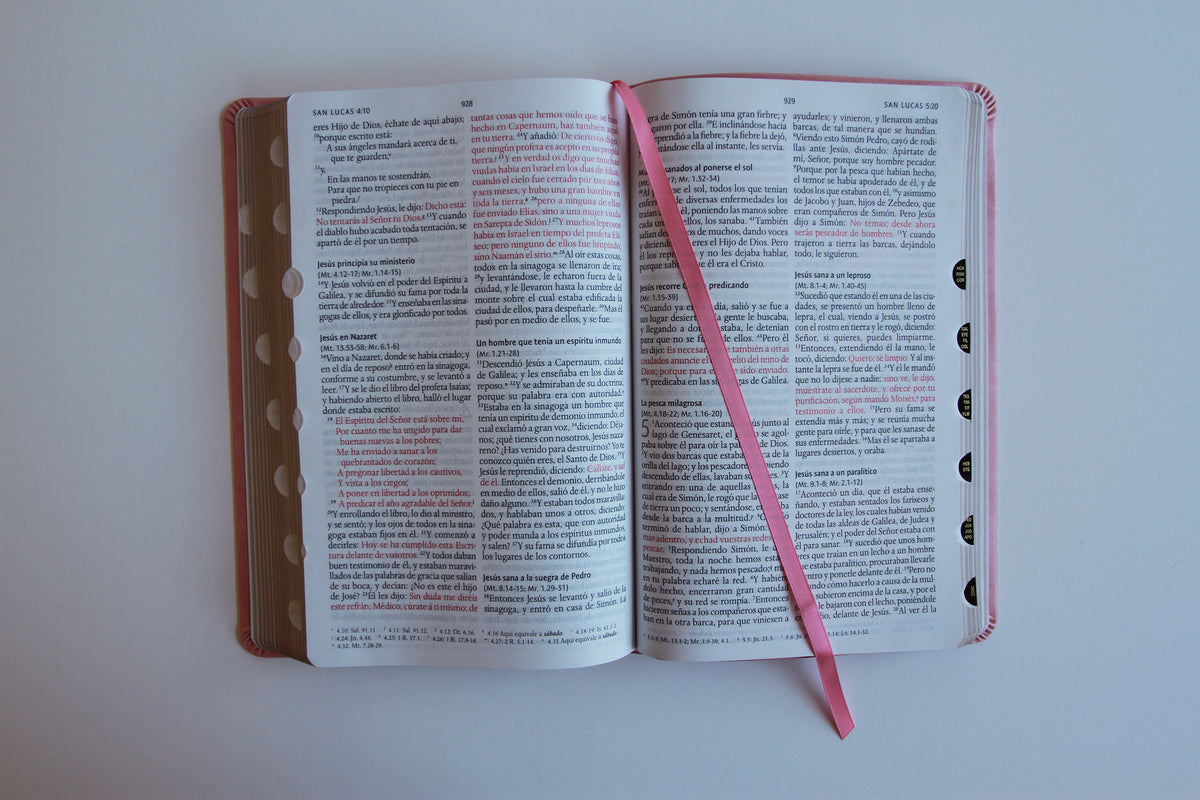 SAN LUCAS 4:10
928
eres Hijo de Dios, échate de aquí abajo;
10porque escrito está:
A sus ángeles mandará acerca de ti,
que te guarden;e
11y,
En las manos te sostendrán,
Para que no tropieces con tu pie en
piedra.f
12Respondiendo Jesús, le dijo: Dicho está:
No tentarás al Señor tu Dios.g 13Y cuando
el diablo hubo acabado toda tentación, se
apartó de él por un tiempo.
Jesús principia su ministerio
(Mt. 4.12-17; Mr. 1.14-15)
14Y Jesús volvió en el poder del Espíritu a
Galilea, y se difundió su fama por toda la
tierra de alrededor. 15Y enseñaba en las sina-
gogas de ellos, y era glorificado por todos.
Jesús en Nazaret
(Mt. 13.53-58; Mr. 6.1-6)
16Vino a Nazaret, donde se había criado; y
en el día de reposoh entró en la sinagoga,
conforme a su costumbre, y se levantó a
leer. 17Y se le dio el libro del profeta Isaías;
y habiendo abierto el libro, halló el lugar
donde estaba escrito:
18 El Espíritu del Señor está sobre mí,
Por cuanto me ha ungido para dar
buenas nuevas a los pobres;
Me ha enviado a sanar a los
quebrantados de corazón;
A pregonar libertad a los cautivos,
Y vista a los ciegos;
A poner en libertad a los oprimidos;
19 A predicar el año agradable del Señor.i
20Y enrollando el libro, lo dio al ministro,
y se sentó; y los ojos de todos en la sina-
goga estaban fijos en él. 21Y comenzó a
decirles: Hoy se ha cumplido esta Escri-
tura delante de vosotros. 22Y todos daban
buen testimonio de él, y estaban maravi-
llados de las palabras de gracia que salían
de su boca, y decían: ¿No es este el hijo
de José? 23Él les dijo: Sin duda me diréis
este refrán: Médico, cúrate a ti mismo; de
tantas cosas que hemos oído que se han
hecho en Capernaum, haz también aquí
en tu tierra. 24Y añadió: De cierto os digo,
que ningún profeta es acepto en su propia
tierra.j 25Y en verdad os digo que muchas
viudas había en Israel en los días de Elías,
cuando el cielo fue cerrado por tres años
y seis meses, y hubo una gran hambre en
toda la tierra;k 26pero a ninguna de ellas
fue enviado Elías, sino a una mujer viuda
en Sarepta de Sidón.l 27Y muchos leprosos
había en Israel en tiempo del profeta Eli-
seo; pero ninguno de ellos fue limpiado,
sino Naamán el sirio.m 28Al oír estas cosas,
todos en la sinagoga se llenaron de ira;
29y levantándose, le echaron fuera de la
ciudad, y le llevaron hasta la cumbre del
monte sobre el cual estaba edificada la
ciudad de ellos, para despeñarle. 30Mas él
pasó por en medio de ellos, y se fue.
Un hombre que tenía un espíritu inmundo
(Mr. 1.21-28)
31Descendió Jesús a Capernaum, ciudad
de Galilea; y les enseñaba en los días de
reposo.n 32Y se admiraban de su doctrina,
porque su palabra era con autoridad.o
33Estaba en la sinagoga un hombre que
tenía un espíritu de demonio inmundo, el
cual exclamó a gran voz, 34diciendo: Déja-
nos; ¿qué tienes con nosotros, Jesús naza-
reno? ¿Has venido para destruirnos? Yo te
conozco quién eres, el Santo de Dios. 35Y
Jesús le reprendió, diciendo: Cállate, y sal
de él. Entonces el demonio, derribándole
en medio de ellos, salió de él, y no le hizo
daño alguno. 36Y estaban todos maravilla-
dos, y hablaban unos a otros, diciendo:
¿Qué palabra es esta, que con autoridad
y poder manda a los espíritus inmundos,
y salen? 37Y su fama se difundía por todos
los lugares de los contornos.
Jesús sana a la suegra de Pedro
(Mt. 8.14-15; Mr. 1.29-31)
38Entonces Jesús se levantó y salió de la
sinagoga, y entró en casa de Simón. La
4.10: Sal. 91.11. 4.11: Sal. 91.12. 4.12: Dt. 6.16. 4.16 Aquí equivale a sábado. 4.18-19: Is. 61.1-2.
4.24: Jn. 4.44. 4.25: 1 R. 17.1. 4.26: 1 R. 17.8-16. 4.27: 2 R. 5.1-14. 4.31 Aquí equivale a sábado.
4.32: Mt. 7.28-29.
929
SAN LUCAS 5:20
gra de Simón tenía una gran fiebre; y
garon por ella. 39E inclinándose hacia
reprendió a la fiebre; y la fiebre la dejó,
ntándose ella al instante, les servía.
sanados al ponerse el sol
17; Mr. 1.32-34)
40Al se el sol, todos los que tenían
enferm de diversas enfermedades los
traían a él, poniendo las manos sobre
cada un ellos, los sanaba. 41También
salían de os de muchos, dando voces
y diciend eres el Hijo de Dios. Pero
él los rep y no les dejaba hablar,
porque sab e él era el Cristo.
Jesús recorre G predicando
(Mr. 1.35-39)
42Cuando ya e día, salió y se fue a
un lugar desiert la gente le buscaba,
y llegando a don staba, le detenían
para que no se fue de ellos. 43Pero él
les dijo: Es necesar e también a otras
ciudades anuncie el ngelio del reino de
Dios; porque para e he sido enviado.
44Y predicaba en las sin gas de Galilea.
La pesca milagrosa
(Mt. 4.18-22; Mr. 1.16-20)
5 1Aconteció que estand sús junto al
lago de Genesaret, el g o se agol-
paba sobre él para oír la pa de Dios.
2Y vio dos barcas que estaba rca de la
orilla del lago; y los pescadores biendo
descendido de ellas, lavaban su s. 3Y
entrando en una de aquellas s, la
cual era de Simón, le rogó que la ase
de tierra un poco; y sentándose, e aba
desde la barca a la multitud. 4Cuando
terminó de hablar, dijo a Simón:
mar adentro, y echad vuestras redes
pescar. 5Respondiendo Simón, le d
Maestro, toda la noche hemos esta
trabajando, y nada hemos pescado; m
en tu palabra echaré la red. 6Y habién
dolo hecho, encerraron gran cantidad
de peces, y su red se rompía. 7Entonces
hicieron señas a los compañeros que esta-
ban en la otra barca, para que viniesen a
ayudarles; y vinieron, y llenaron ambas
barcas, de tal manera que se hundían.
8Viendo esto Simón Pedro, cayó de rodi-
llas ante Jesús, diciendo: Apártate de
mí, Señor, porque soy hombre pecador.
9Porque por la pesca que habían hecho,
el temor se había apoderado de él, y de
todos los que estaban con él, 10y asimismo
de Jacobo y Juan, hijos de Zebedeo, que
eran compañeros de Simón. Pero Jesús
dijo a Simón: No temas; desde ahora
serás pescador de hombres. 11Y cuando
trajeron a tierra las barcas, dejándolo
todo, le siguieron.
Jesús sana a un leproso
(Mt. 8.1-4; Mr. 1.40-45)
12Sucedió que estando él en una de las ciu-
dades, se presentó un hombre lleno de
lepra, el cual, viendo a Jesús, se postró
con el rostro en tierra y le rogó, diciendo:
Señor, si quieres, puedes limpiarme.
13Entonces, extendiendo él la mano, le
tocó, diciendo: Quiero; sé limpio. Y al ins-
tante la lepra se fue de él. 14Y él le mandó
que no lo dijese a nadie; sino ve, le dijo,
muéstrate al sacerdote, y ofrece por tu
purificación, según mandó Moisés, para
testimonio a ellos. 15Pero su fama se
extendía más y más; y se reunía mucha
gente para oírle, y para que les sanase de
sus enfermedades. 16Mas él se apartaba a
lugares desiertos, y oraba.
Jesús sana a un paralítico
(Mt. 9.1-8; Mr. 2.1-12)
17Aconteció un día, que él estaba ense-
ñando, y estaban sentados los fariseos y
doctores de la ley, los cuales habían venido
de todas las aldeas de Galilea, de Judea y
Jerusalén; y el poder del Señor estaba con
él para sanar. 18Y sucedió que unos hom-
bres que traían en un lecho a un hombre
estaba paralítico, procuraban llevarle
ntro y ponerle delante de él. 19Pero no
ando cómo hacerlo a causa de la mul-
subieron encima de la casa, y por el
le bajaron con el lecho, poniéndole
dio, delante de Jesús. 20Al ver él la
5.1-3: Mt. 13.1-2; Mr. 3.9-10; 4.1. 5.5: Jn. 21.3. 5.6: Jn. 5.14: Lv. 14.1-32.
HCH
ROM
COR
GAL
EFE
FIL
COL
TES
TIM
TIT
FLM
HEB
STG
PED
JUA
JUD
APO
CONC